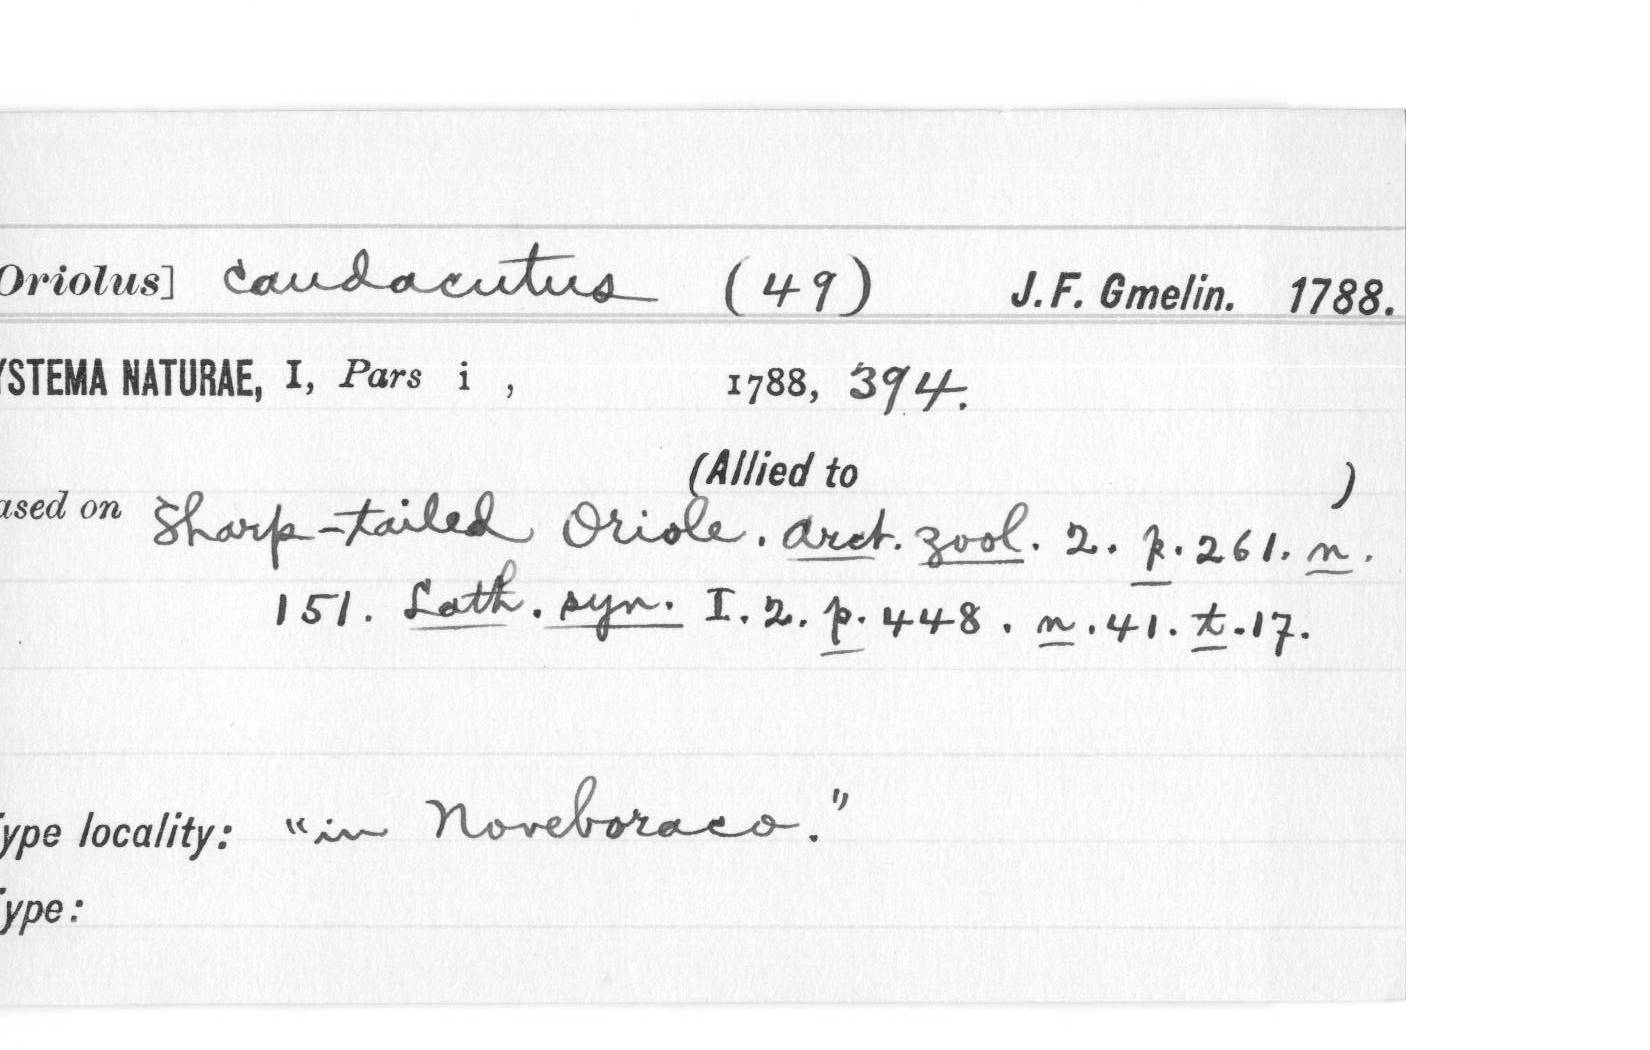 Oriolus] caudacutus (49) J. F. Gmelin. 1788.
YSTEMA NATURAE, I, Pars i , 1788, 394.
(Allied to )
ased on Sharp-tailed Oriole. Arct. zool. 2. p. 261. n.
151. Lath. syn. I. 2. p. 448. n. 41. t. 17.
ype locality: "in Noveboraco."
ype: